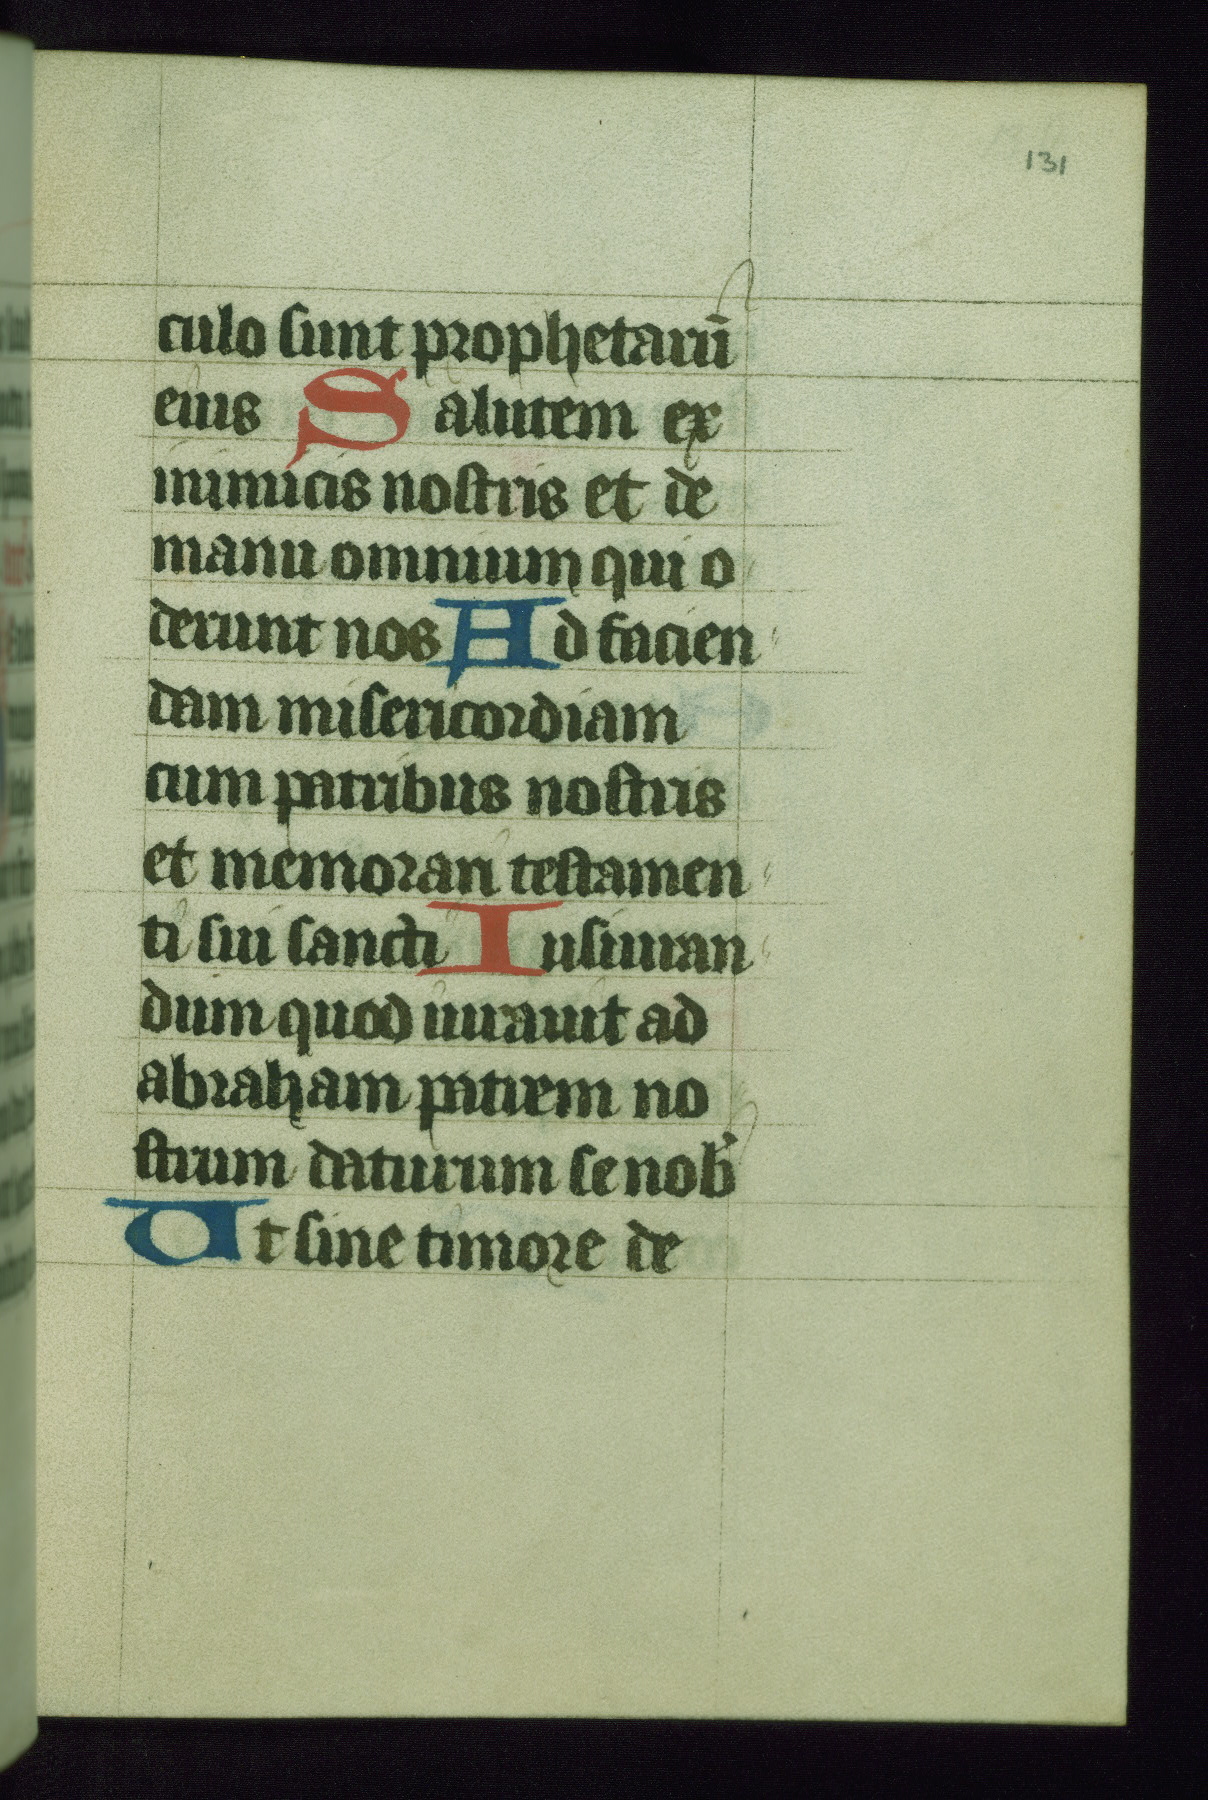 131
culo sunt prophetarū
eius Salutem ex
inimicis nostris et de
manu omnium qui o
derunt nos Ad facien
dam misericordiam
cum patribus nostris
et memorari testamen
ti sui sancti Iusiuran
dum quod iurauit ad
abraham patrem no
strum daturum se nob̕
Ut sine timore de